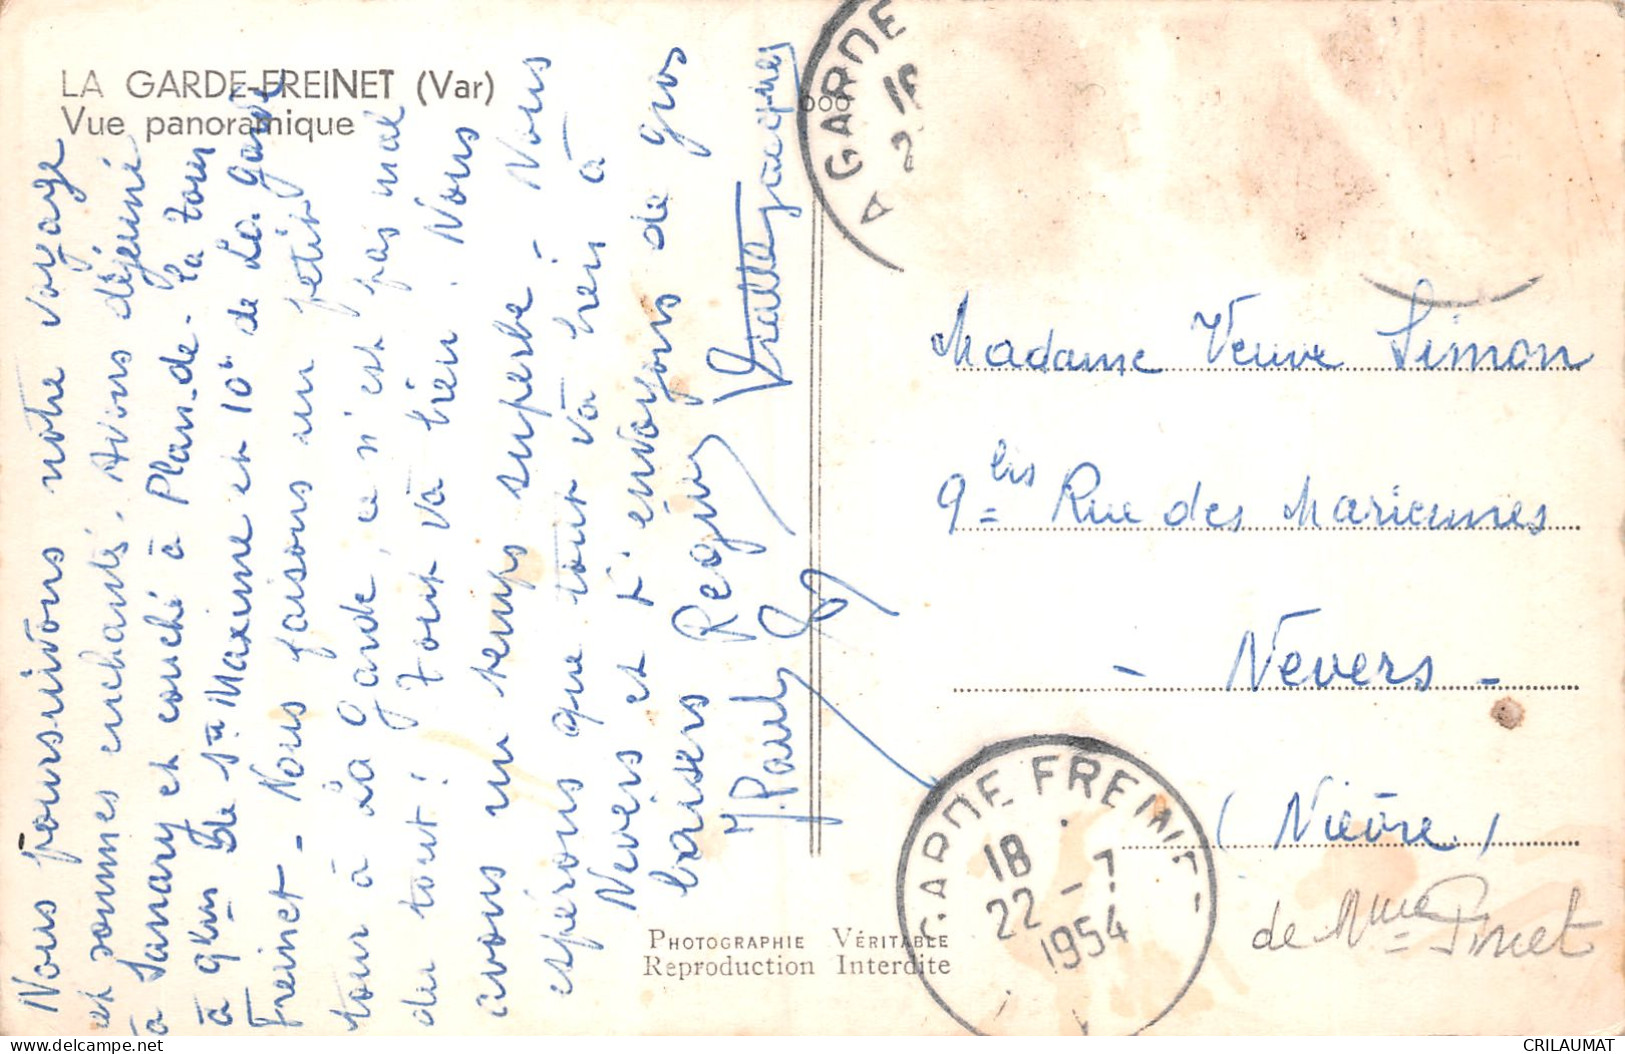 LA GARDE-FREINET (Var)
Vue panoramique
Nous poursuivons notre voyage
et sommes enchantés. Avons déjeuné
à Sanary et couché à Plan-de-la Tour
à 9 kms de Ste Maxime et 10 de La Garde
Freinet - Nous faisons un petit
tour à La Garde, ce n'est pas mal
du tout! Tout va bien. Nous
avons un temps superbe - Nous
espérons que tout va bien à
Nevers et t'envoyons de gros
baisers
M. Paul
A GARDE
18
2
Madame Veuve Simon
9 bis Rue des Mariennes
- Nevers -
(Nièvre)
de Mme Pinet
GARDE FREINET
18
22 - 7
1954
PHOTOGRAPHIE VÉRITABLE
Reproduction Interdite
delcampe.net
CRILAUMAT